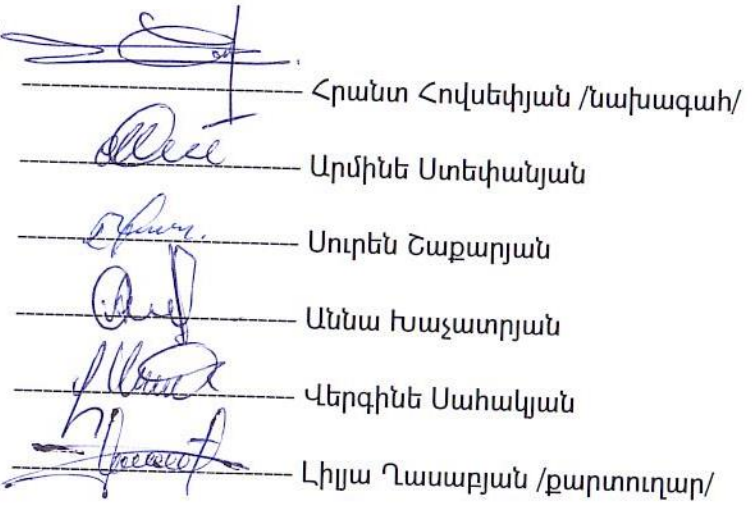 Հրանտ Հովսեփյան /նախագահ/
Արմինե Ստեփանյան
Սուրեն Շաքարյան
Աննա Խաչատրյան
Վերգինե Սահակյան
Լիլյա Ղասաբյան /քարտուղար/